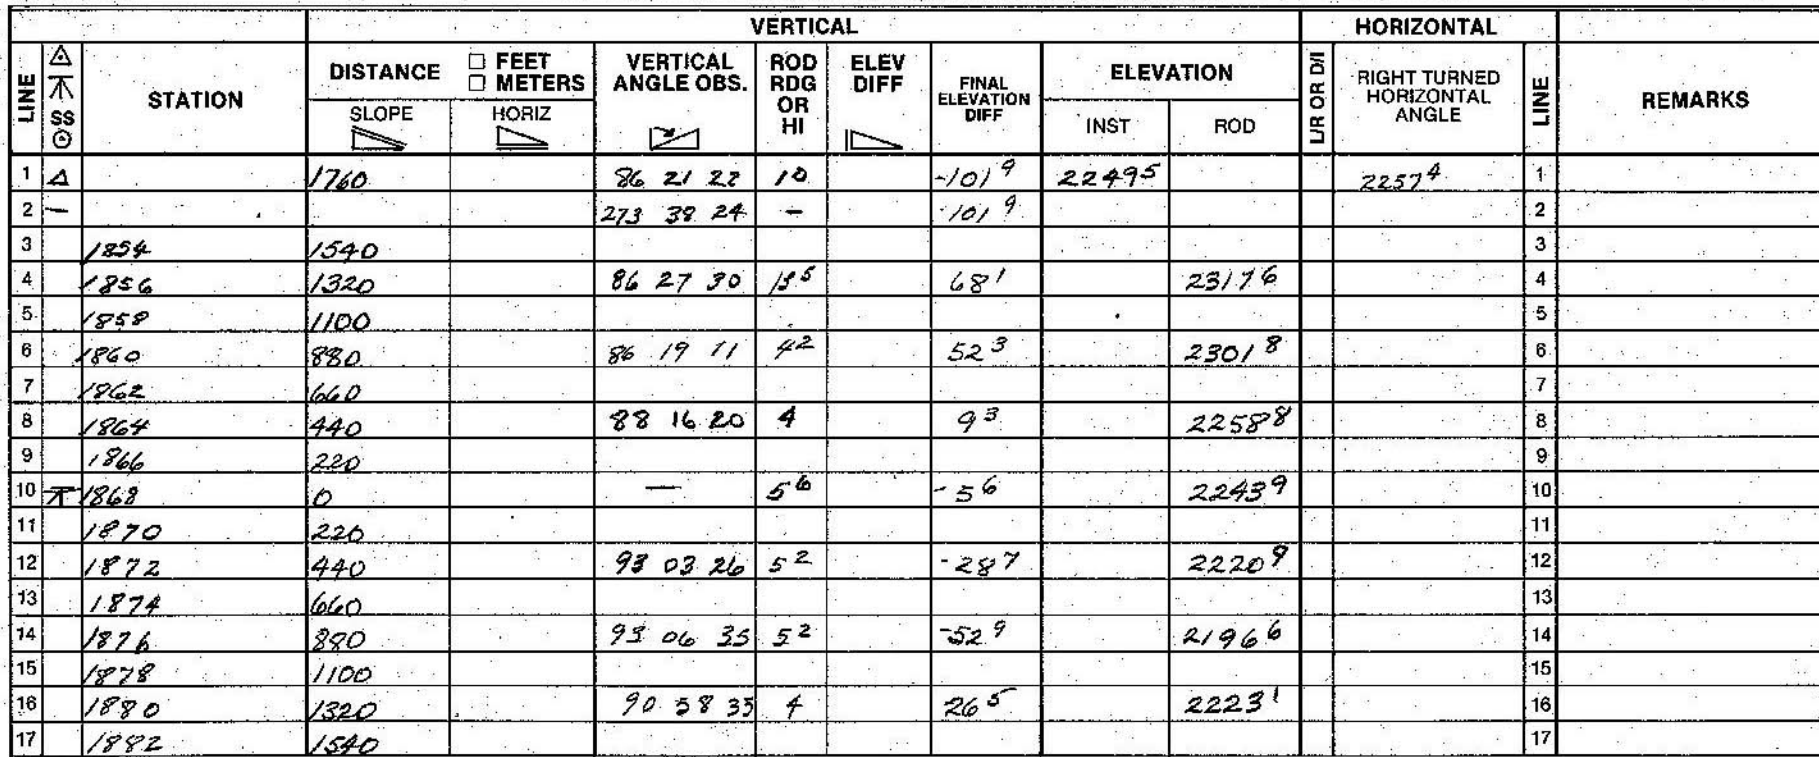 VERTICAL HORIZONTAL
LINE SS STATION DISTANCE □ FEET □ METERS SLOPE HORIZ VERTICAL ANGLE OBS. ROD RDG OR HI ELEV DIFF FINAL ELEVATION DIFF ELEVATION INST ROD L/R OR D/I RIGHT TURNED HORIZONTAL ANGLE LINE REMARKS
1 Δ 1760 86 21 22 10 -101 9 2249 5 2257 4 1
2 — 273 38 24 – -101 9 2
3 1854 1540 3
4 1856 1320 86 27 30 13 5 68 1 2317 6 4
5 1858 1100 5
6 1860 880 86 19 11 4 2 52 3 2301 8 6
7 1862 660 7
8 1864 440 88 16 20 4 9 3 2258 8 8
9 1866 220 9
10 1868 0 — 5 6 -5 6 2243 9 10
11 1870 220 11
12 1872 440 93 03 26 5 2 -28 7 2220 9 12
13 1874 660 13
14 1876 880 93 06 35 5 2 -52 9 2196 6 14
15 1878 1100 15
16 1880 1320 90 58 35 4 26 5 2223 1 16
17 1882 1540 17